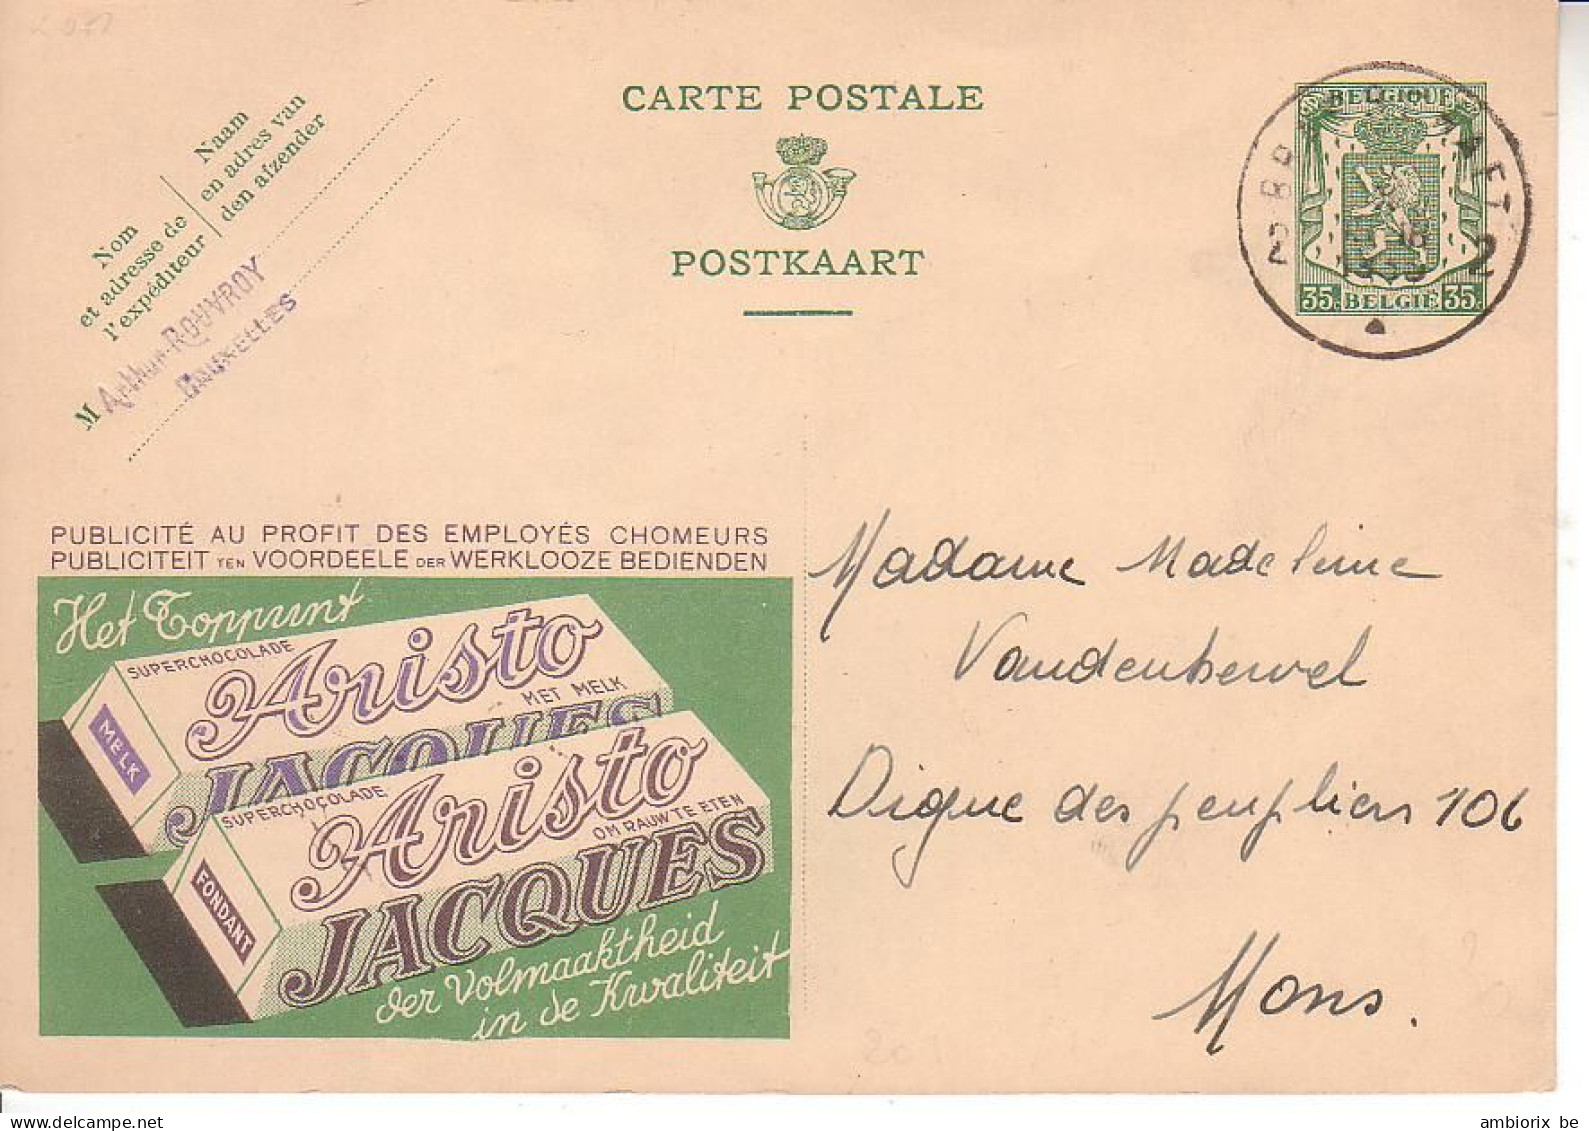 CARTE POSTALE
POSTKAART
Nom
et adresse de
l'expéditeur
Naam
en adres van
den afzender
M Arthur ROUVROY
BRUXELLES
BELGIQUE
35c BELGIË 35c
2 2
PUBLICITÉ AU PROFIT DES EMPLOYÉS CHOMEURS
PUBLICITEIT TEN VOORDEELE DER WERKLOOZE BEDIENDEN
Het Toppunt
SUPERCHOCOLADE
Aristo
MET MELK
MELK
JACQUES
SUPERCHOCOLADE
Aristo
OM RAUW TE ETEN
FONDANT
JACQUES
der Volmaaktheid
in de Kwaliteit
Madame Madeleine
Digue des peupliers 106
Mons.
ambiorix be